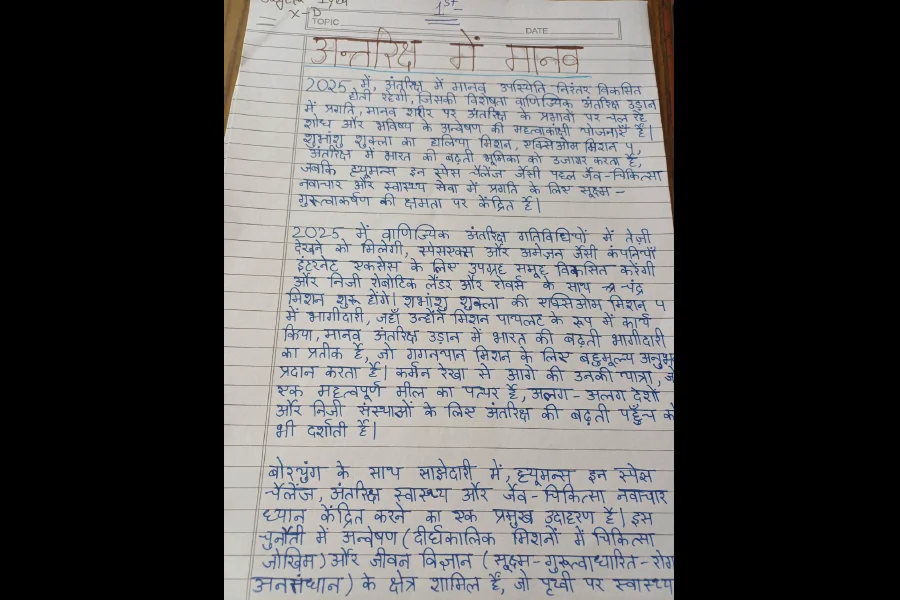 X-D
1st
TOPIC
DATE
अन्तरिक्ष में मानव
2025 में, अंतरिक्ष में मानव उपस्थिति निरंतर विकसित
होती रहेगी, जिसकी विशेषता वाणिज्यिक अंतरिक्ष उड़ान
में प्रगति, मानव शरीर पर अंतरिक्ष के प्रभावों पर चल रहे
शोध और भविष्य के अन्वेषण की महत्वाकांक्षी योजनाएँ हैं।
शुभांशु शुक्ला का हालिया मिशन, एक्सिओम मिशन 4,
अंतरिक्ष में भारत की बढ़ती भूमिका को उजागर करता है,
जबकि ह्यूमन्स इन स्पेस चैलेंज जैसी पहल जैव-चिकित्सा
नवाचार और स्वास्थ्य सेवा में प्रगति के लिए सूक्ष्म-
गुरुत्वाकर्षण की क्षमता पर केंद्रित हैं।
2025 में वाणिज्यिक अंतरिक्ष गतिविधियों में तेज़ी
देखने को मिलेगी, स्पेसएक्स और अमेज़न जैसी कंपनियाँ
इंटरनेट एक्सेस के लिए उपग्रह समूह विकसित करेंगी
और निजी रोबोटिक लैंडर और रोवर्स के साथ चंद्र
मिशन शुरू होंगे। शुभांशु शुक्ला की एक्सिओम मिशन 4
में भागीदारी, जहाँ उन्होंने मिशन पायलट के रूप में कार्य
किया, मानव अंतरिक्ष उड़ान में भारत की बढ़ती भागीदारी
का प्रतीक है, जो गगनयान मिशन के लिए बहुमूल्य अनुभव
प्रदान करता है। कर्मन रेखा से आगे की उनकी यात्रा, जो
एक महत्वपूर्ण मील का पत्थर है, अलग-अलग देशों
और निजी संस्थाओं के लिए अंतरिक्ष की बढ़ती पहुँच को
भी दर्शाती है।
बोरयुंग के साथ साझेदारी में, ह्यूमन्स इन स्पेस
चैलेंज, अंतरिक्ष स्वास्थ्य और जैव-चिकित्सा नवाचार
ध्यान केंद्रित करने का एक प्रमुख उदाहरण है। इस
चुनौती में अन्वेषण (दीर्घकालिक मिशनों में चिकित्सा
जोखिम) और जीवन विज्ञान (सूक्ष्म-गुरुत्वाधारित-रोग
अनसंधान) के क्षेत्र शामिल हैं, जो पृथ्वी पर स्वास्थ्य